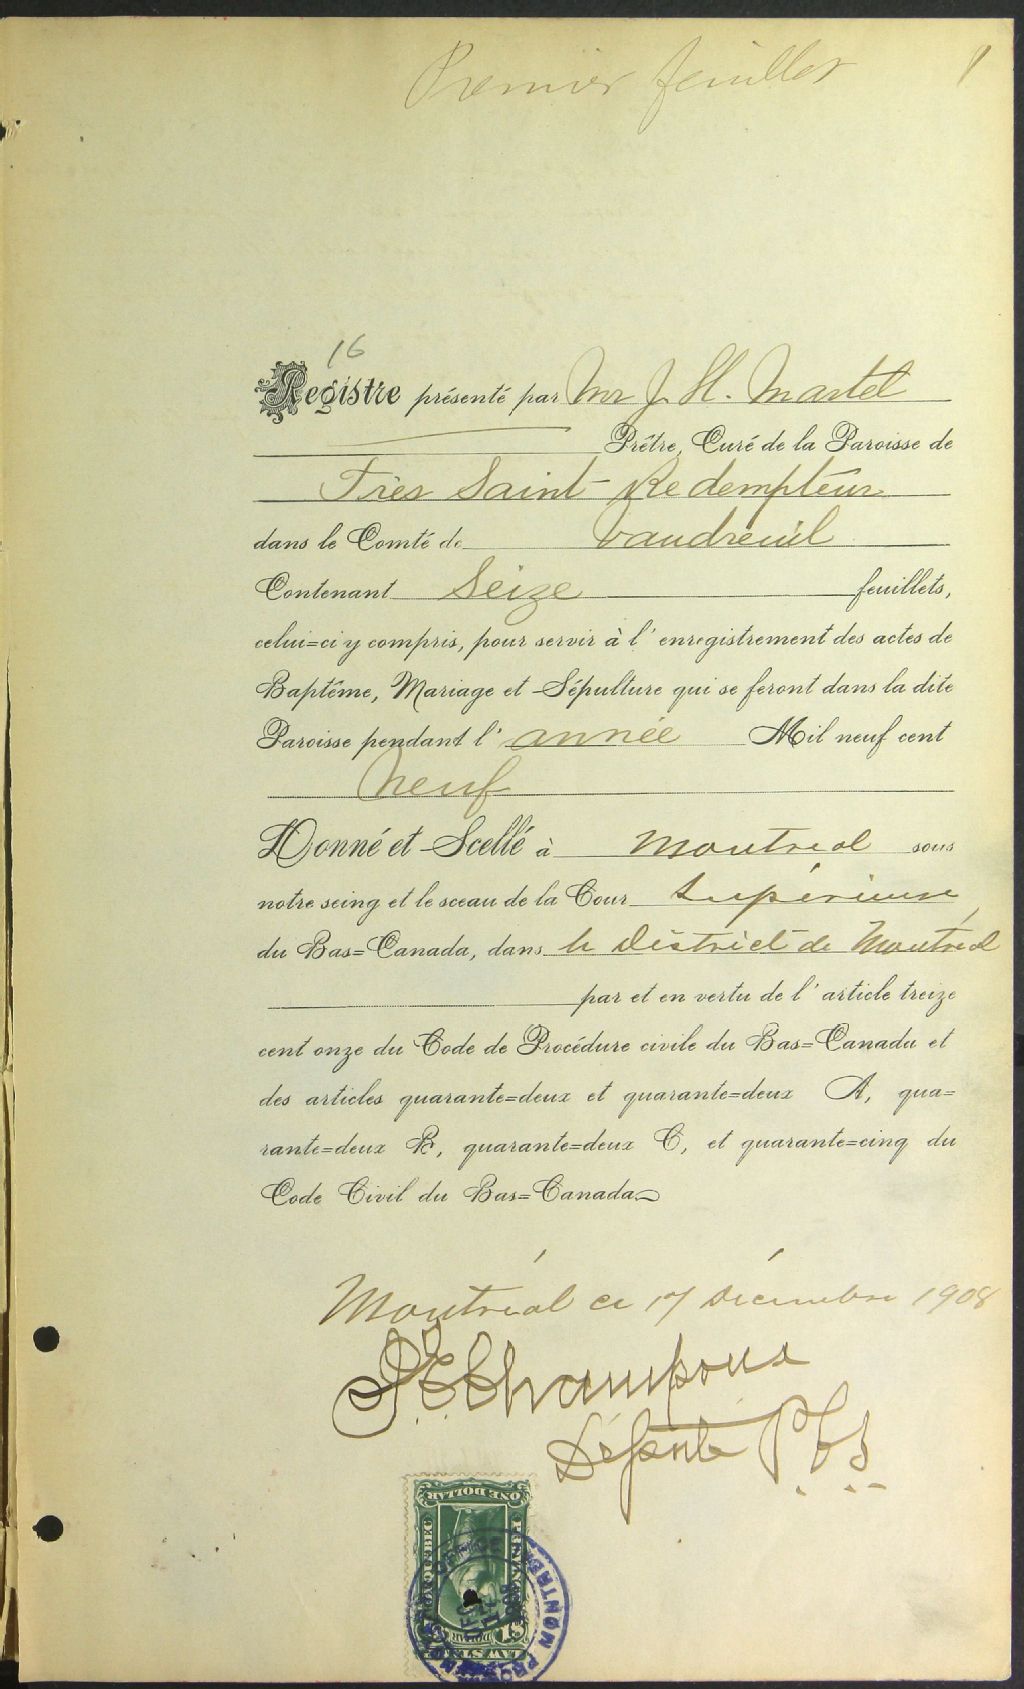 Premier feuillet 1
16
Registre présenté par Mr J. H. Martel
Prêtre, Curé de la Paroisse de
Très Saint-Redempteur
dans le Comté de Vaudreuil
Contenant Seize feuillets,
celui=ci y compris, pour servir à l'enregistrement des actes de
Baptême, Mariage et Sépulture qui se feront dans la dite
Paroisse pendant l'année Mil neuf cent
Neuf
Donné et Scellé à Montreal sous
notre seing et le sceau de la Cour Supérieure
du Bas=Canada, dans le District de Montréal
par et en vertu de l'article treize
cent onze du Code de Procédure civile du Bas=Canada et
des articles quarante=deux et quarante=deux A, qua=
rante=deux B, quarante=deux C, et quarante=cinq du
Code Civil du Bas=Canada
Montréal ce 17 Décembre 1908
Champoux
Député P.C.S.
ONE DOLLAR
QUEBEC
$1
DOLLAR
LAW STAMP